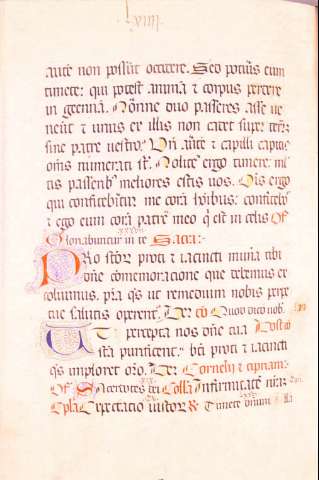 xviii
autē non possūt occidere. Sed potius eum
timete: qui potest animā & corpus perdere
in geennā. Nōnne duo passeres asse ve
neūt & unus ex illis non cadet super terrā
sine patre vestro. Vri autē & capilli capitis
oms numerati st. Nolite ergo timere: ml
tis passerib meliores estis vos. Ois ergo
qui confitebitur me corā hoibus: confitebor
& ego eum corā patre meo q est in celis Of
Gloriabuntur in te Sacra:
PRo stor proti & iacincti munā tibi
dne comemoracione que debemus ex
soluimus. pra qs ut remedium nobis perpe
tue salutis operent. Per Cō Quod dico vob
UT percepta nos dne tua Postco
sta purificent. bti proti & iacincti
qs imploret oro. Per Cornelii & cipriani
Of Sacerdotes dei Colla Infirmitatē nrā
Epla Expectatio iustor & Timete dominū